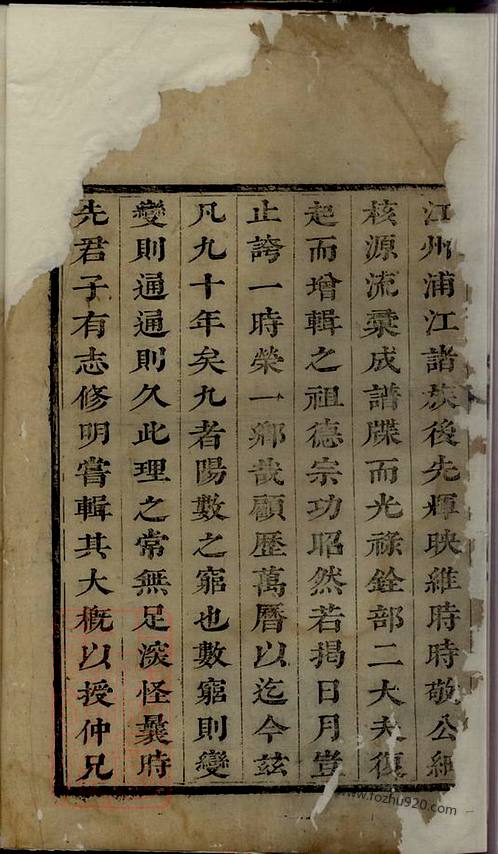 江州浦江諸族後先輝映維時時敬公經
核源流彚成譜牒而光祿銓部二大夫復
起而增輯之祖德宗功昭然若揭日月豈
止誇一時榮一鄉哉顧歷萬曆以迄今兹
凡九十年矣九者陽數之窮也數窮則變
變則通通則久此理之常無足深怪曩時
先君子有志修明嘗輯其大槪以授仲兄
www.fozhu920.com